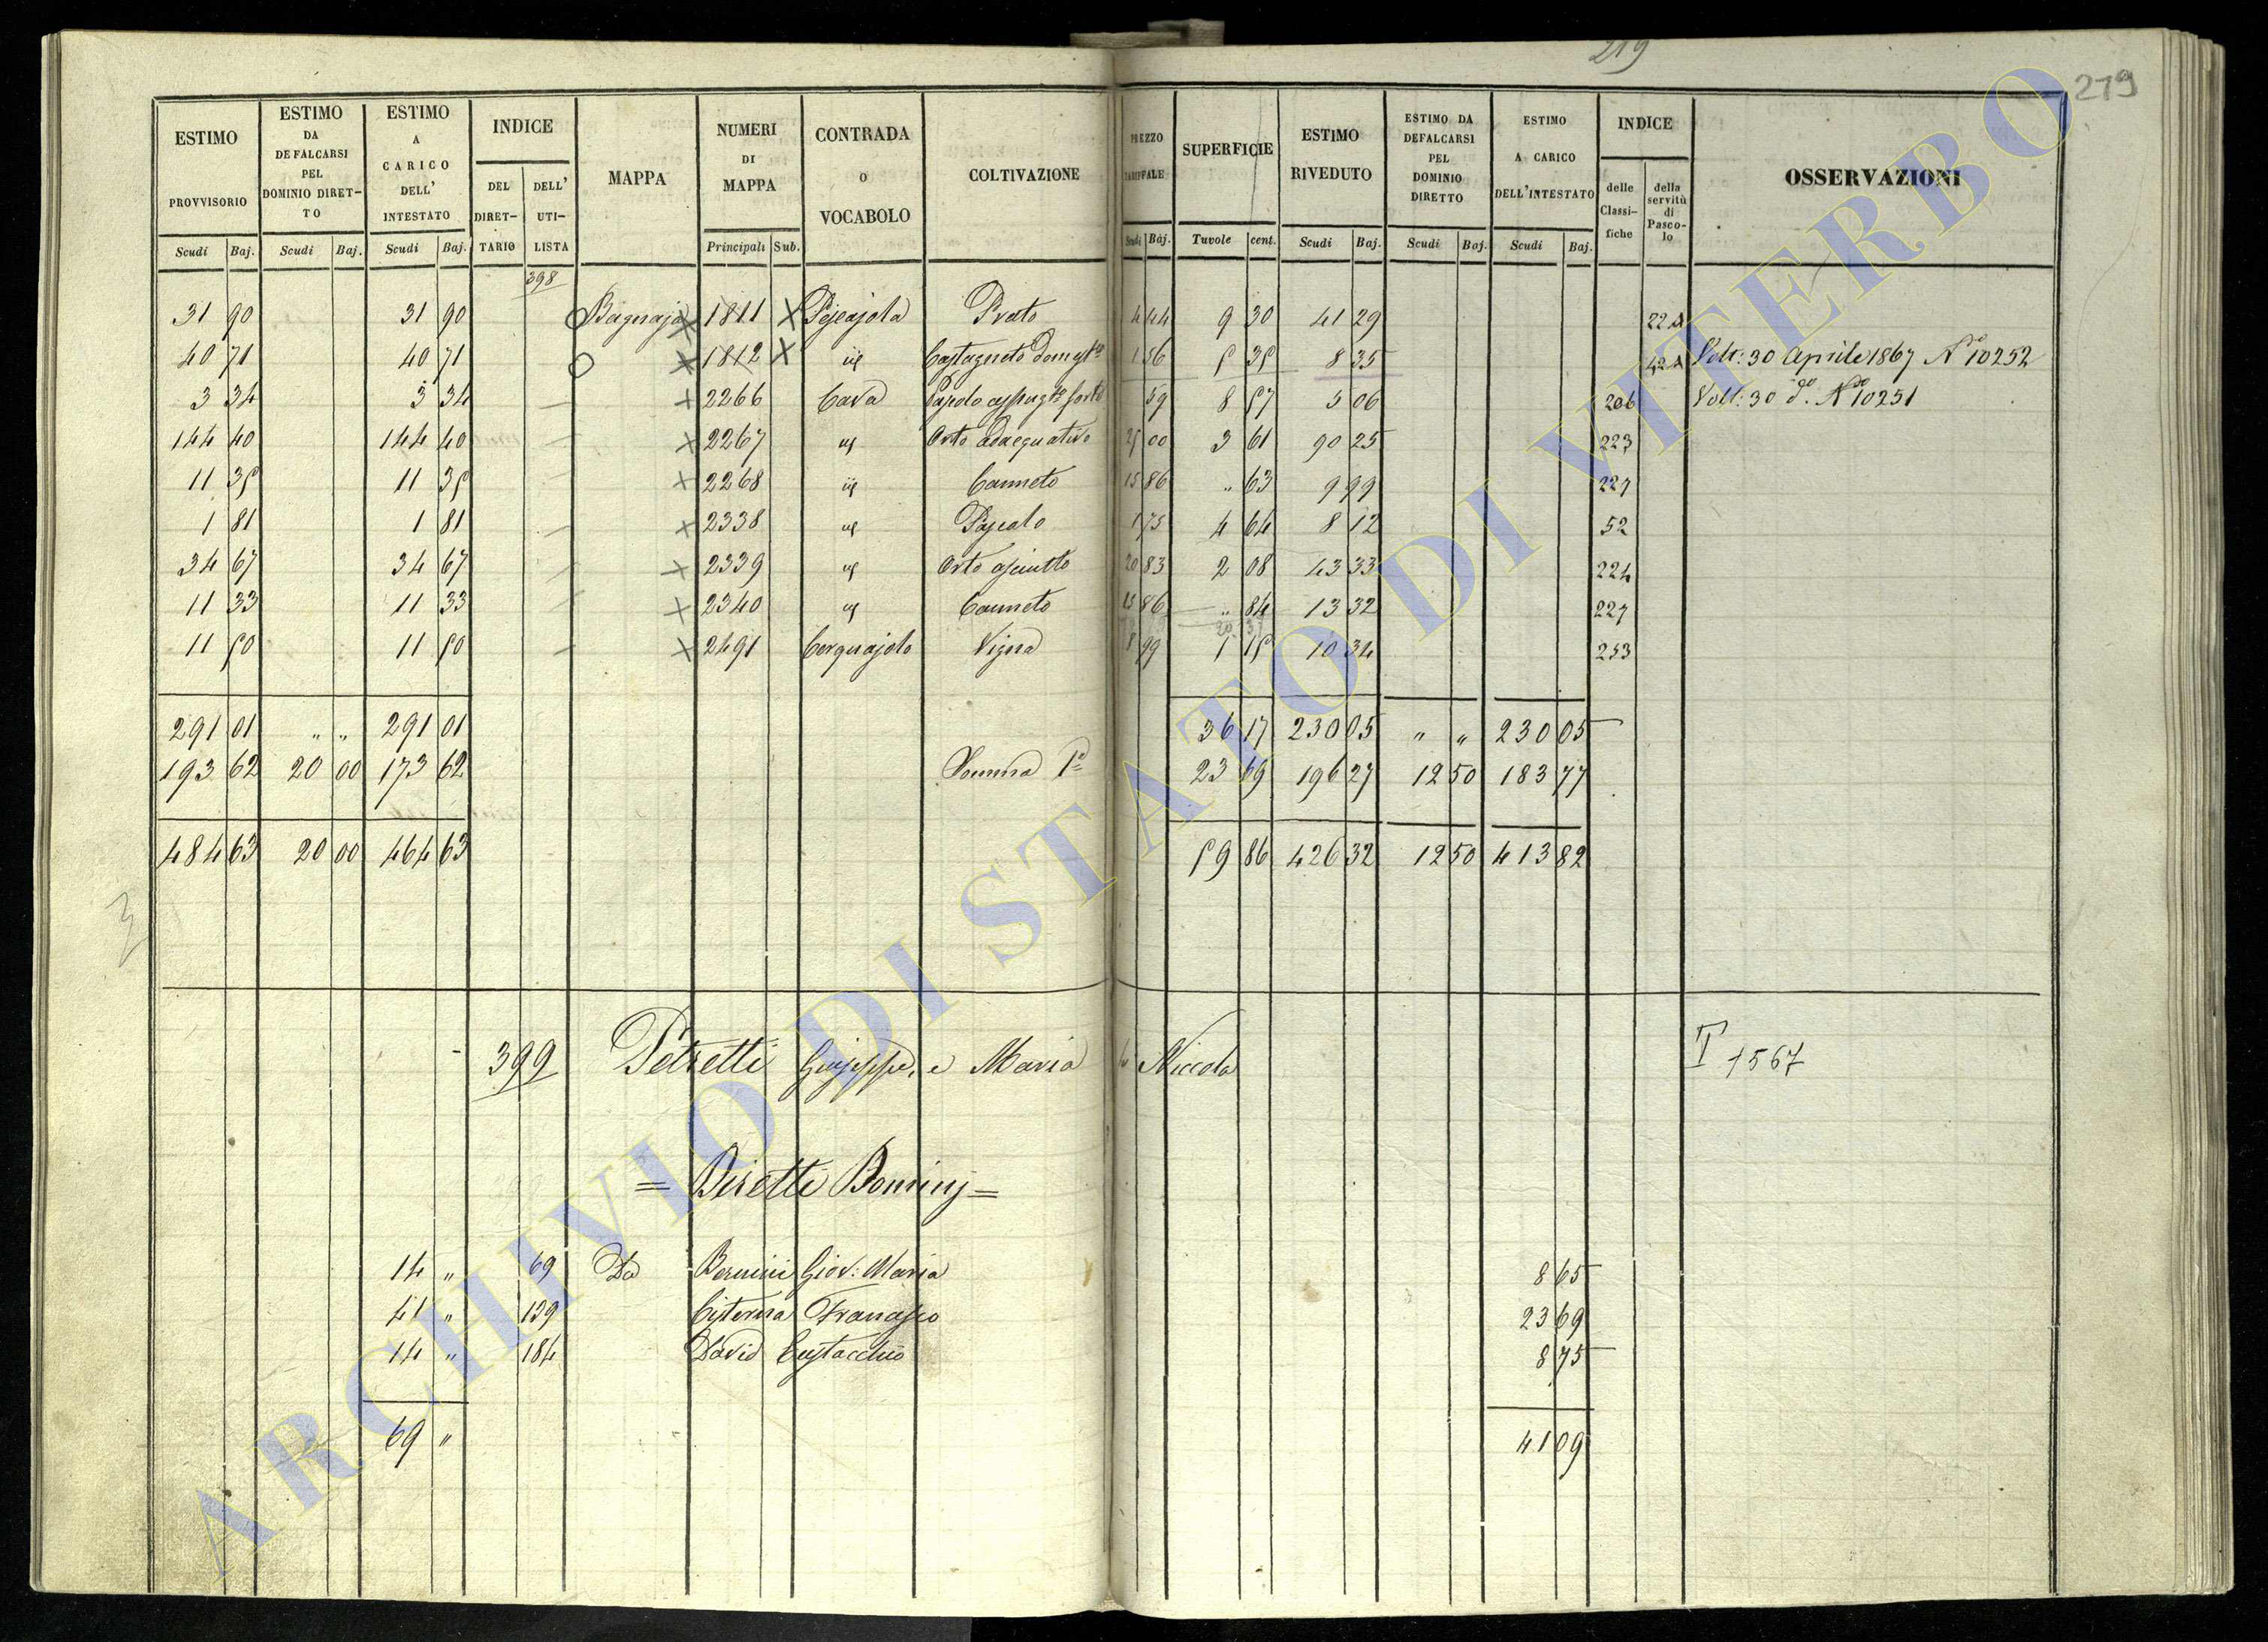 219
219
ESTIMO PROVVISORIO | ESTIMO DA DEFALCARSI PEL DOMINIO DIRETTO | ESTIMO A CARICO DELL' INTESTATO | INDICE DEL DIRETTARIO | DELL' UTILISTA | MAPPA | NUMERI DI MAPPA | CONTRADA O VOCABOLO | COLTIVAZIONE | PREZZO TARIFFALE | SUPERFICIE | ESTIMO RIVEDUTO | ESTIMO DA DEFALCARSI PEL DOMINIO DIRETTO | ESTIMO A CARICO DELL'INTESTATO | INDICE delle Classifiche | della servitù di Pascolo | OSSERVAZIONI
Scudi Baj. Scudi Baj. Scudi Baj. Principali Sub. Scudi Baj. Tuvole cent. Scudi Baj. Scudi Baj. Scudi Baj.
398
31 90 31 90 Bagnaja X 1811 X Prato 4 44 9 30 41 29 22A
40 71 40 71 O X 1812 X Castagneto 1 56 5 35 8 35 42A Volt: 30 Aprile 1867 N° 10252
3 34 3 34 X 2266 Cava 59 8 57 5 06 206 Volt: 30 do. N° 10251
144 40 144 40 X 2267 Orto adacquativo 25 00 3 61 90 25 223
11 35 11 35 X 2268 Canneto 15 86 " 63 9 99 227
1 81 1 81 X 2338 Pascolo 1 75 4 64 8 12 52
34 67 34 67 X 2339 Orto asciutto 20 83 2 08 43 33 224
11 33 11 33 X 2340 Canneto 15 86 " 84 13 32 227
11 50 11 50 X 2491 Cerquajolo Vigna 8 99 1 15 10 34 253
291 01 " " 291 01 36 17 230 05 " " 230 05
193 62 20 00 173 62 Somma Pe 23 69 196 27 12 50 183 77
484 63 20 00 464 63 59 86 426 32 12 50 413 82
3
399 Petretti Giuseppe, e Maria fu Niccola T 1567
= Diretti Dominj =
14 " 69 Da Bernini Giov: Maria 8 65
41 " 139 Cisterna Francesco 23 69
14 " 184 David Eustacchio 8 75
69 " 41 09
ARCHIVIO DI STATO DI VITERBO